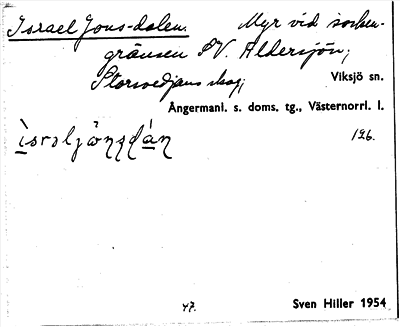 Israel Jons-dalen. Myr vid socken-
gränsen SV. Aldersjön;
Storsvedjans skog; Viksjö sn.
Ångermanl. s. doms. tg., Västernorrl. l.
196.
47. Sven Hiller 1954